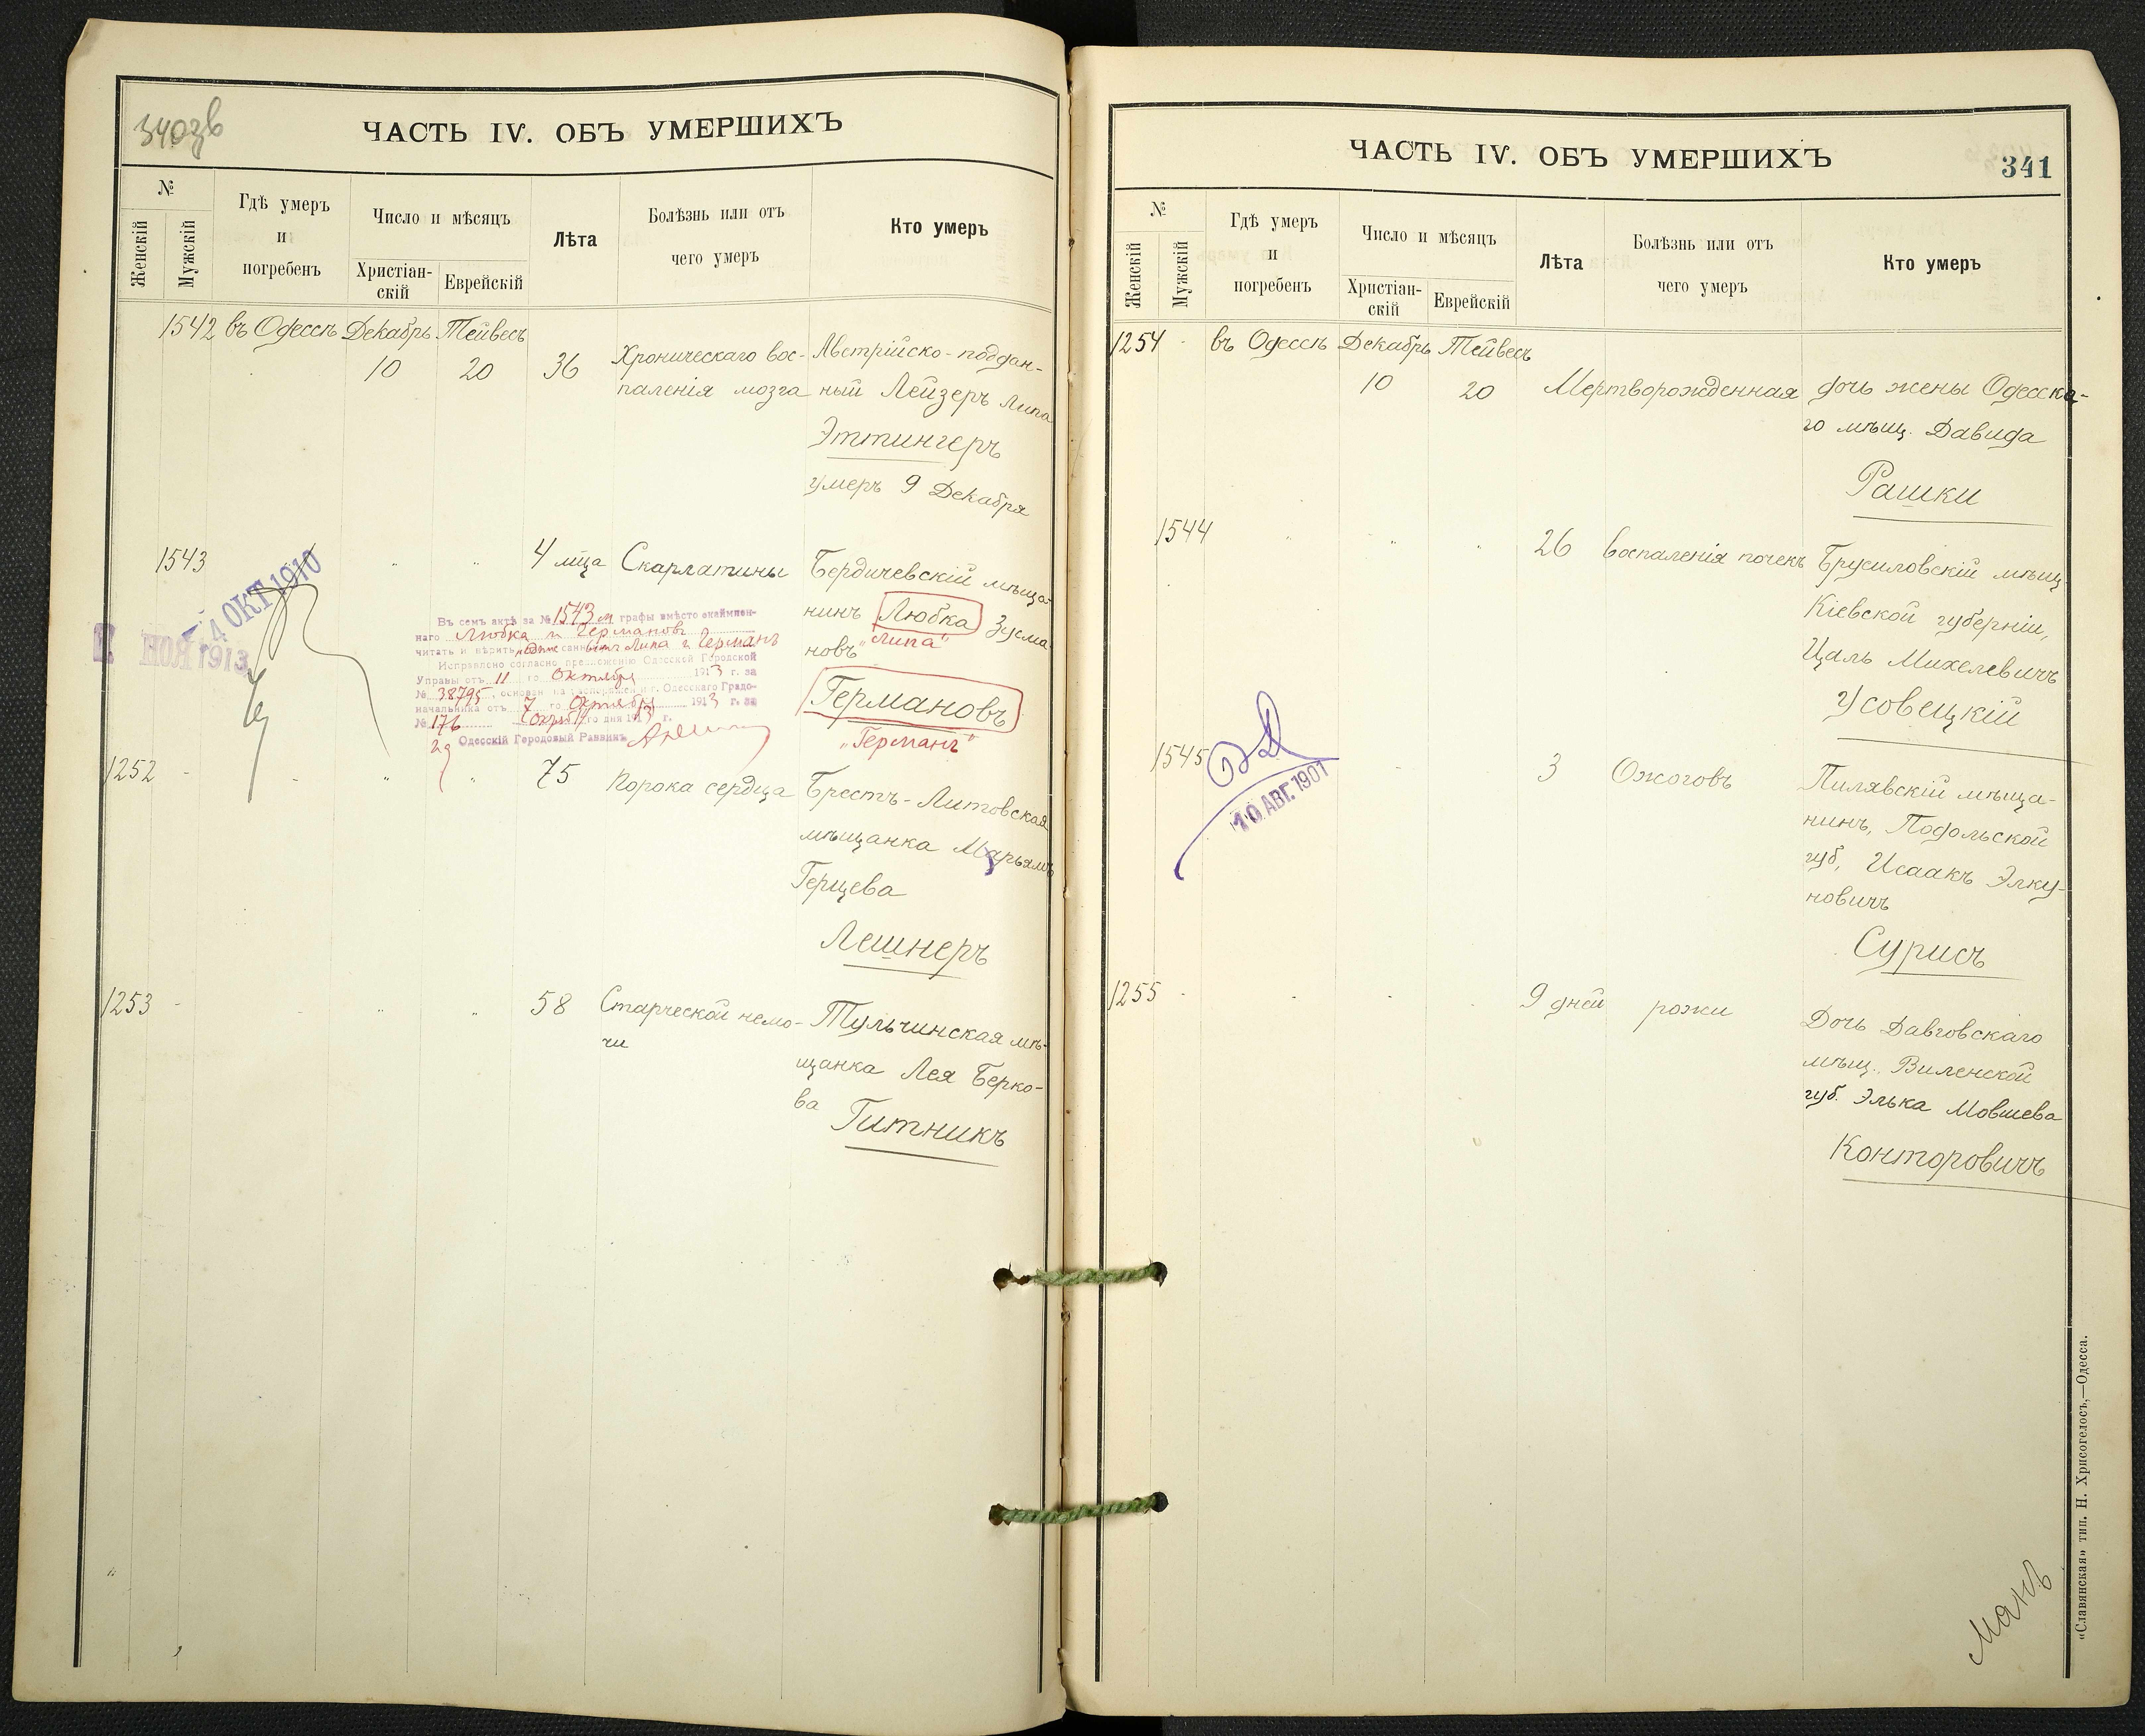 340 зв
ЧАСТЬ IV. ОБЪ УМЕРШИХЪ
№
Женскій
Мужскій
Гдѣ умеръ
и
погребенъ
Число и мѣсяцъ
Христіан-
скій
Еврейскій
Лѣта
Болѣзнь или отъ
чего умеръ
Кто умеръ
1542 въ Одессѣ Декабрь Тейвесъ
10 20 36 Хроническаго вос- Австрійско-поддан-
паленія мозга ный Лейзеръ Липа
Эттингеръ
умеръ 9 Декабря
1543 " " 4 мца Скарлатины Бердичевскій мѣща-
нинъ Любка Зусма-
новъ "Липа"
Германовъ
"Германъ"
4 ОКТ 1910
НОЯ 1913
Въ семъ актѣ за № 1543 м графы вмѣсто окаймлен-
наго Любка и Германовъ
читать и вѣрить Липа и Германъ
Исправлено согласно предложенію Одесской Городской
Управы отъ 11 го Октября 1913 г. за
№ 38795, основан на распоряжен и г. Одесскаго Градо-
начальника отъ 7 го Октября 1913 г. за
№ 176 го дня 1913 г.
Одесскій Городовый Раввинъ
1252 - - " " 75 Порока сердца Брестъ-Литовская
мѣщанка Марьямъ
Герцева
Лешнеръ
1253 - " " 58 Старческой немо- Тульчинская мѣ-
чи щанка Лея Берко-
ва Гитникъ
ЧАСТЬ IV. ОБЪ УМЕРШИХЪ
341
№
Женскій
Мужскій
Гдѣ умеръ
и
погребенъ
Число и мѣсяцъ
Христіан-
скій
Еврейскій
Лѣта
Болѣзнь или отъ
чего умеръ
Кто умеръ
1254 - въ Одессѣ Декабрь Тейвесъ
10 20 Мертворожденная дочь жены Одесска-
го мѣщ. Давида
Рашки
1544 " " " 26 Воспаленія почекъ Брусиловскій мѣщ.
Кіевской губерніи,
Цаль Михелевичъ
Усовецкій
1545 - 3 Ожоговъ Пилявскій мѣща-
нинъ, Подольской
губ, Исаакъ Элку-
новичъ
Сурисъ
10 АВГ. 1901
1255 - - - 9 дней рожи Дочь Давговскаго
мѣщ., Виленской
губ. Элька Мовшева
Конторовичъ
«Славянская» тип. Н. Хрисогелосъ,—Одесса.